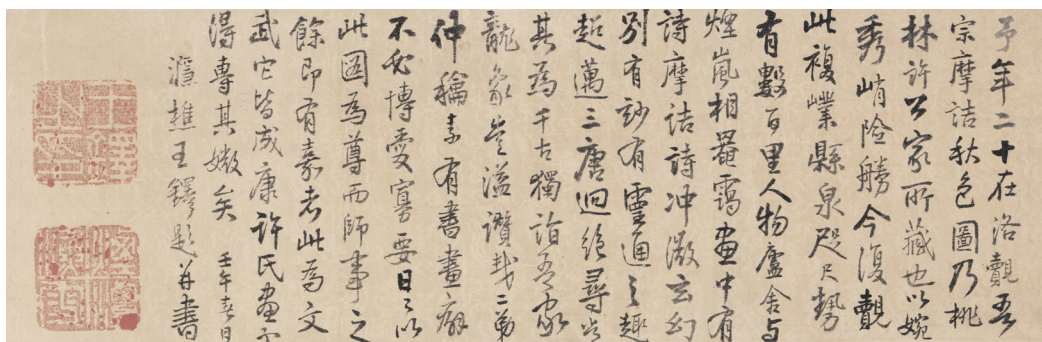 予年二十在洛觀吾
宗摩詰秋色圖乃桃
林許公家所藏也以婉
秀峭險勝今復觀
此複嶫縣泉咫尺勢
有數百里人物廬舍与
煙嵐相罨靄畫中有
詩摩詰詩沖澂玄幻
別有玅有靈通之趣
超邁三唐迥絕尋常
其為千古獨詣吾家
龍象豈溢讚哉二弟
仲穚素有書畫癖
不必博愛寡要日日以
此圖為尊而師事之
餘即有嘉者此為文
武它皆成康許氏畫不
得專其媺矣 壬午春日
濦樵王鐸題并書